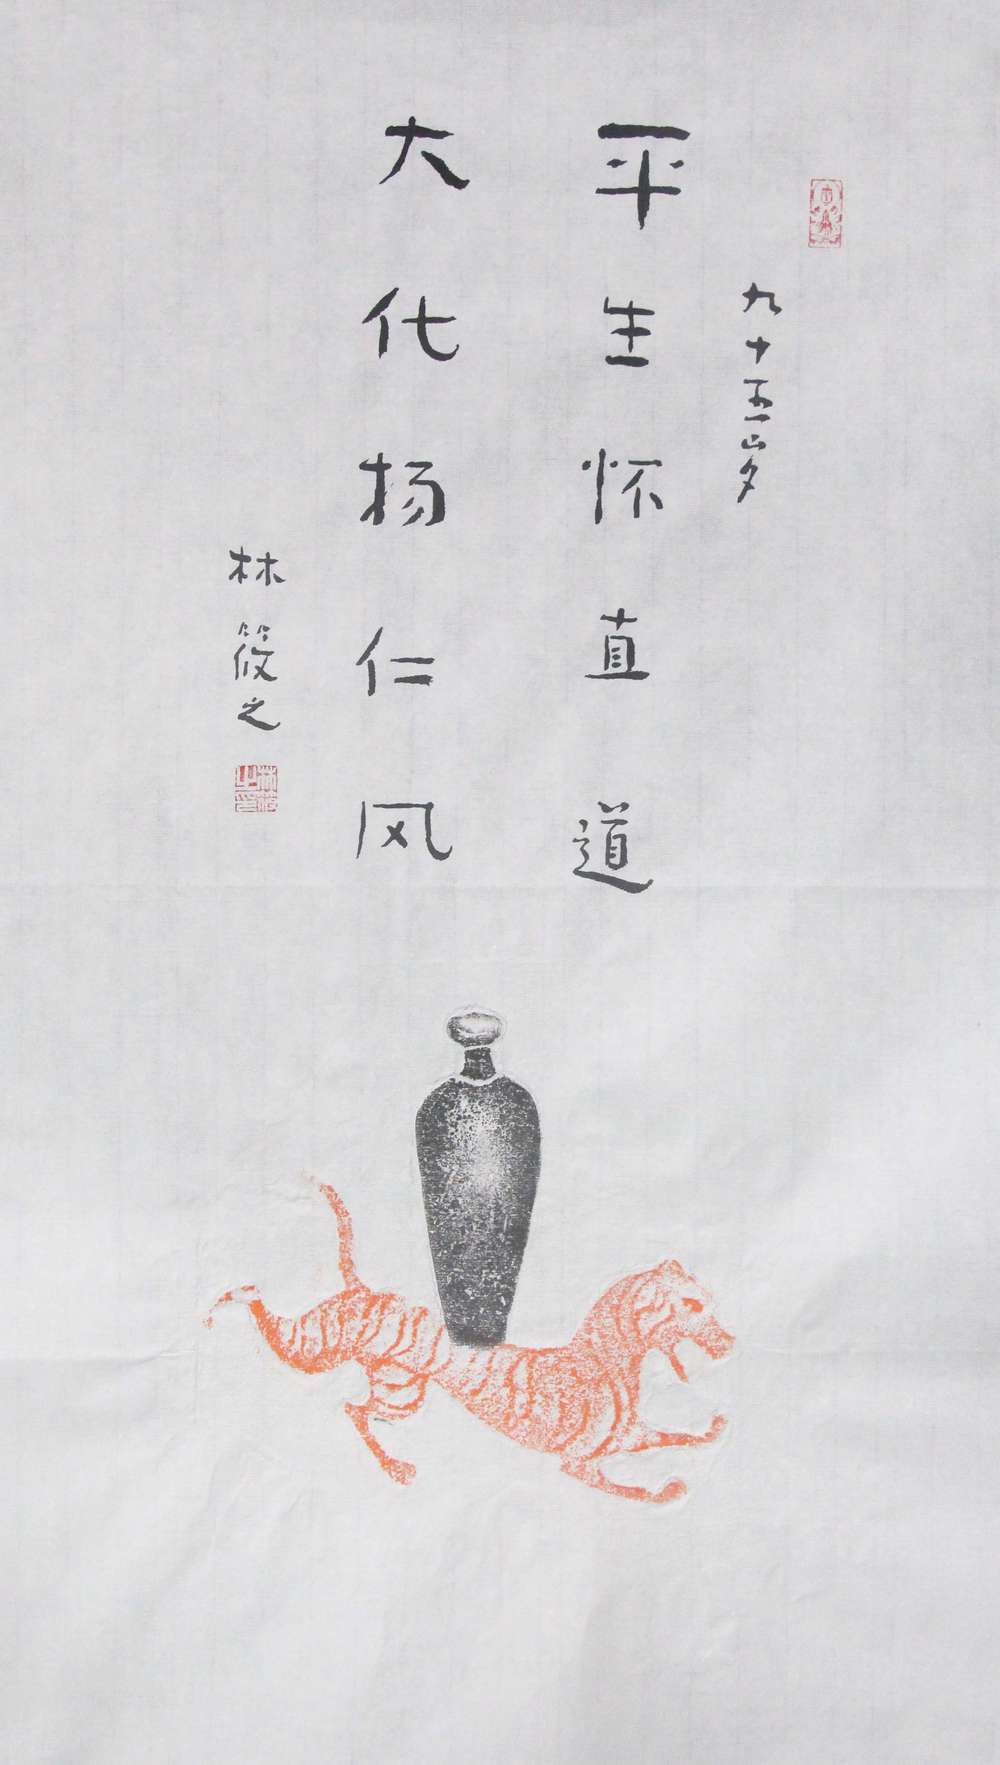 九十五岁
平生怀直道
大化扬仁风
林筱之